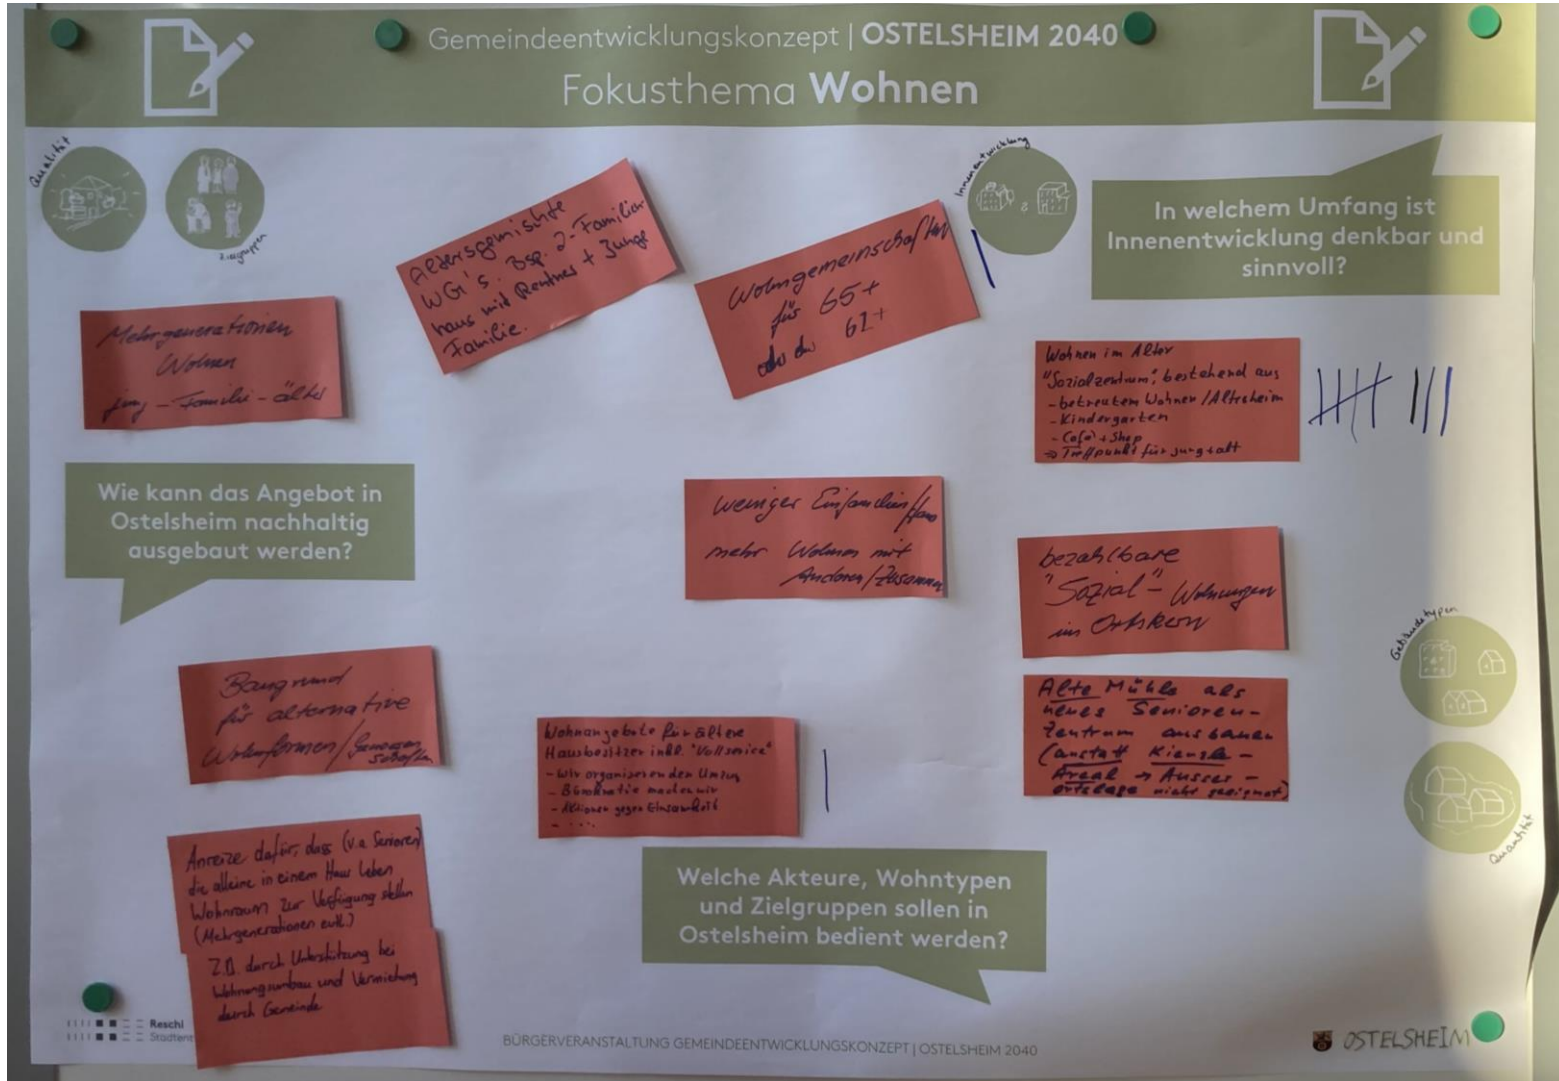 Gemeindeentwicklungskonzept | OSTELSHEIM 2040
Fokusthema Wohnen
Qualität
Zielgruppen
Innenentwicklung
In welchem Umfang ist
Innenentwicklung denkbar und
sinnvoll?
Altersgemischte
WG's. Bsp. 2-Familien
haus mit Rentner + Junge
Familie.
Wohngemeinschaften
für 65+
oder 61+
Mehrgenerationen
Wohnen
jung - Familie - älter
Wohnen im Alter
"Sozialzentrum", bestehend aus
- betreutem Wohnen / Altersheim
- Kindergarten
- Café + Shop
⇒ Treffpunkt für jung + alt
Wie kann das Angebot in
Ostelsheim nachhaltig
ausgebaut werden?
weniger Einfamilien/Haus
mehr Wohnen mit
Anderen/Zusammen
bezahlbare
"Sozial" - Wohnungen
im Ortskern
Gebäudetypen
Baugrund
für alternative
Wohnformen / Genossen
schaften
Wohnangebote für ältere
Hausbesitzer inkl. "Vollservice"
- Wir organisieren den Umzug
- Bürokratie machen wir
- Aktionen gegen Einsamkeit
- ....
Alte Mühle als
neues Senioren-
Zentrum ausbauen
(anstatt Kienzle-
Areal → Ausser-
ortslage nicht geeignet)
Quantität
Anreize dafür, dass (v.a. Senioren)
die alleine in einem Haus leben
Wohnraum zur Verfügung stellen
(Mehrgenerationen evtl.)
z.B. durch Unterstützung bei
Wohnungsumbau und Vermietung
durch Gemeinde
Welche Akteure, Wohntypen
und Zielgruppen sollen in
Ostelsheim bedient werden?
Reschl
Stadtent
BÜRGERVERANSTALTUNG GEMEINDEENTWICKLUNGSKONZEPT | OSTELSHEIM 2040
OSTELSHEIM